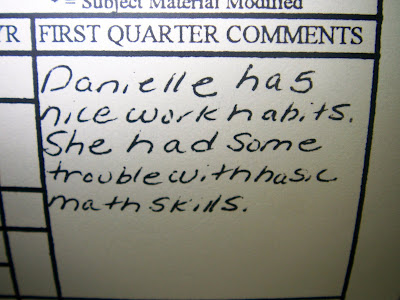 * = Subject Material Modified
YR FIRST QUARTER COMMENTS
Danielle has
nice work habits.
She had some
trouble with basic
math skills.